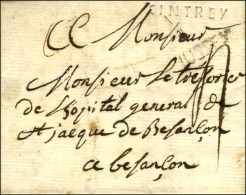 CINTREY
Monsieur
Monsieur le tresorier
de lhopital general de
St jacque de Besançon
a besançon